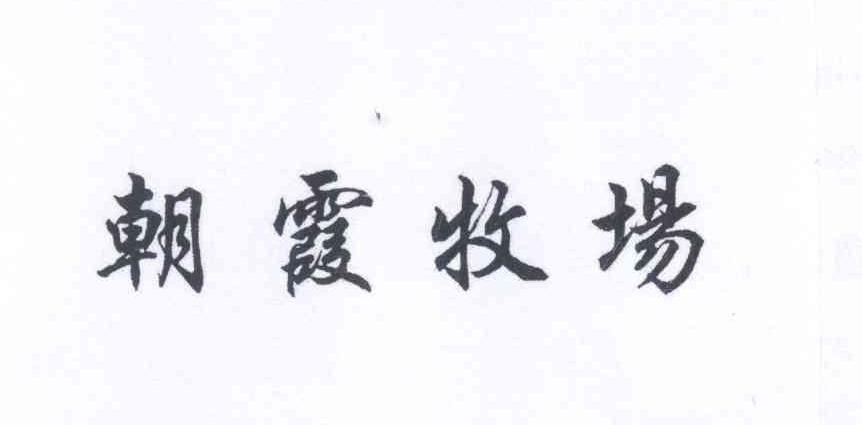 朝霞牧場